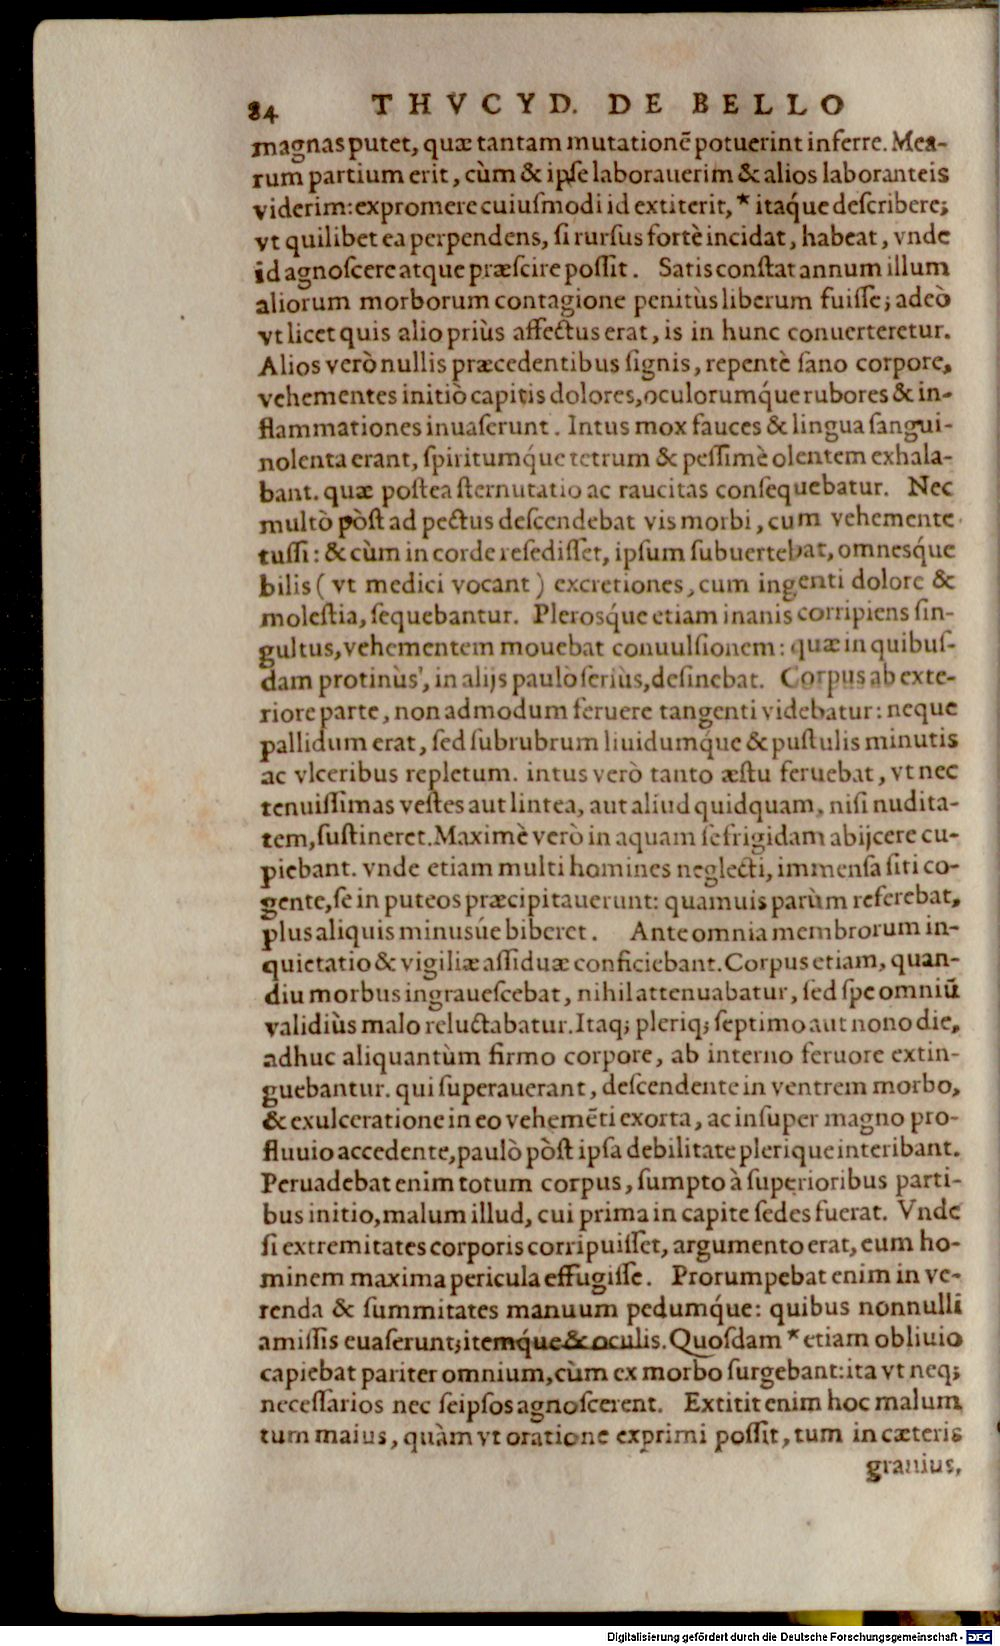 84 THVCYD. DE BELLO
magnas putet, quæ tantam mutationē potuerint inferre. Mea-
rum partium erit, cùm & ipse laborauerim & alios laboranteis
viderim: expromere cuiusmodi id extiterit, * itaq́ue describere;
vt quilibet ea perpendens, si rursus fortè incidat, habeat, vnde
id agnoscere atque præscire possit. Satis constat annum illum
aliorum morborum contagione penitùs liberum fuisse; adeò
vt licet quis alio priùs affectus erat, is in hunc conuerteretur.
Alios verò nullis præcedentibus signis, repentè sano corpore,
vehementes initiò capitis dolores, oculorumq́ue rubores & in-
flammationes inuaserunt. Intus mox fauces & lingua sangui-
nolenta erant, spiritumq́ue tetrum & pessimè olentem exhala-
bant. quæ postea sternutatio ac raucitas consequebatur. Nec
multò pòst ad pectus descendebat vis morbi, cum vehemente
tussi: & cùm in corde resedisset, ipsum subuertebat, omnesq́ue
bilis (vt medici vocant) excretiones, cum ingenti dolore &
molestia, sequebantur. Plerosq́ue etiam inanis corripiens sin-
gultus, vehementem mouebat conuulsionem: quæ in quibus-
dam protinùs, in alijs paulò seriùs, desinebat. Corpus ab exte-
riore parte, non admodum feruere tangenti videbatur: neque
pallidum erat, sed subrubrum liuidumq́ue & pustulis minutis
ac vlceribus repletum. intus verò tanto æstu feruebat, vt nec
tenuissimas vestes aut lintea, aut aliud quidquam, nisi nudita-
tem, sustineret. Maximè verò in aquam se frigidam abijcere cu-
piebant. vnde etiam multi homines neglecti, immensa siti co-
gente, se in puteos præcipitauerunt: quamuis parùm referebat,
plus aliquis minusúe biberet. Ante omnia membrorum in-
quietatio & vigiliæ assiduæ conficiebant. Corpus etiam, quan-
diu morbus ingrauescebat, nihil attenuabatur, sed spe omniū
validiùs malo reluctabatur. Itaq; pleriq; septimo aut nono die,
adhuc aliquantùm firmo corpore, ab interno feruore extin-
guebantur. qui superauerant, descendente in ventrem morbo,
& exulceratione in eo vehemēti exorta, ac insuper magno pro-
fluuio accedente, paulò pòst ipsa debilitate plerique interibant.
Peruadebat enim totum corpus, sumpto à superioribus parti-
bus initio, malum illud, cui prima in capite sedes fuerat. Vnde
si extremitates corporis corripuisset, argumento erat, eum ho-
minem maxima pericula effugisse. Prorumpebat enim in ve-
renda & summitates manuum pedumq́ue: quibus nonnulli
amissis euaserunt; itemq́ue & oculis. Quosdam * etiam obliuio
capiebat pariter omnium, cùm ex morbo surgebant: ita vt neq;
necessarios nec seipsos agnoscerent. Extitit enim hoc malum
tum maius, quàm vt oratione exprimi possit, tum in cæteris
grauius,
Digitalisierung gefördert durch die Deutsche Forschungsgemeinschaft - DFG